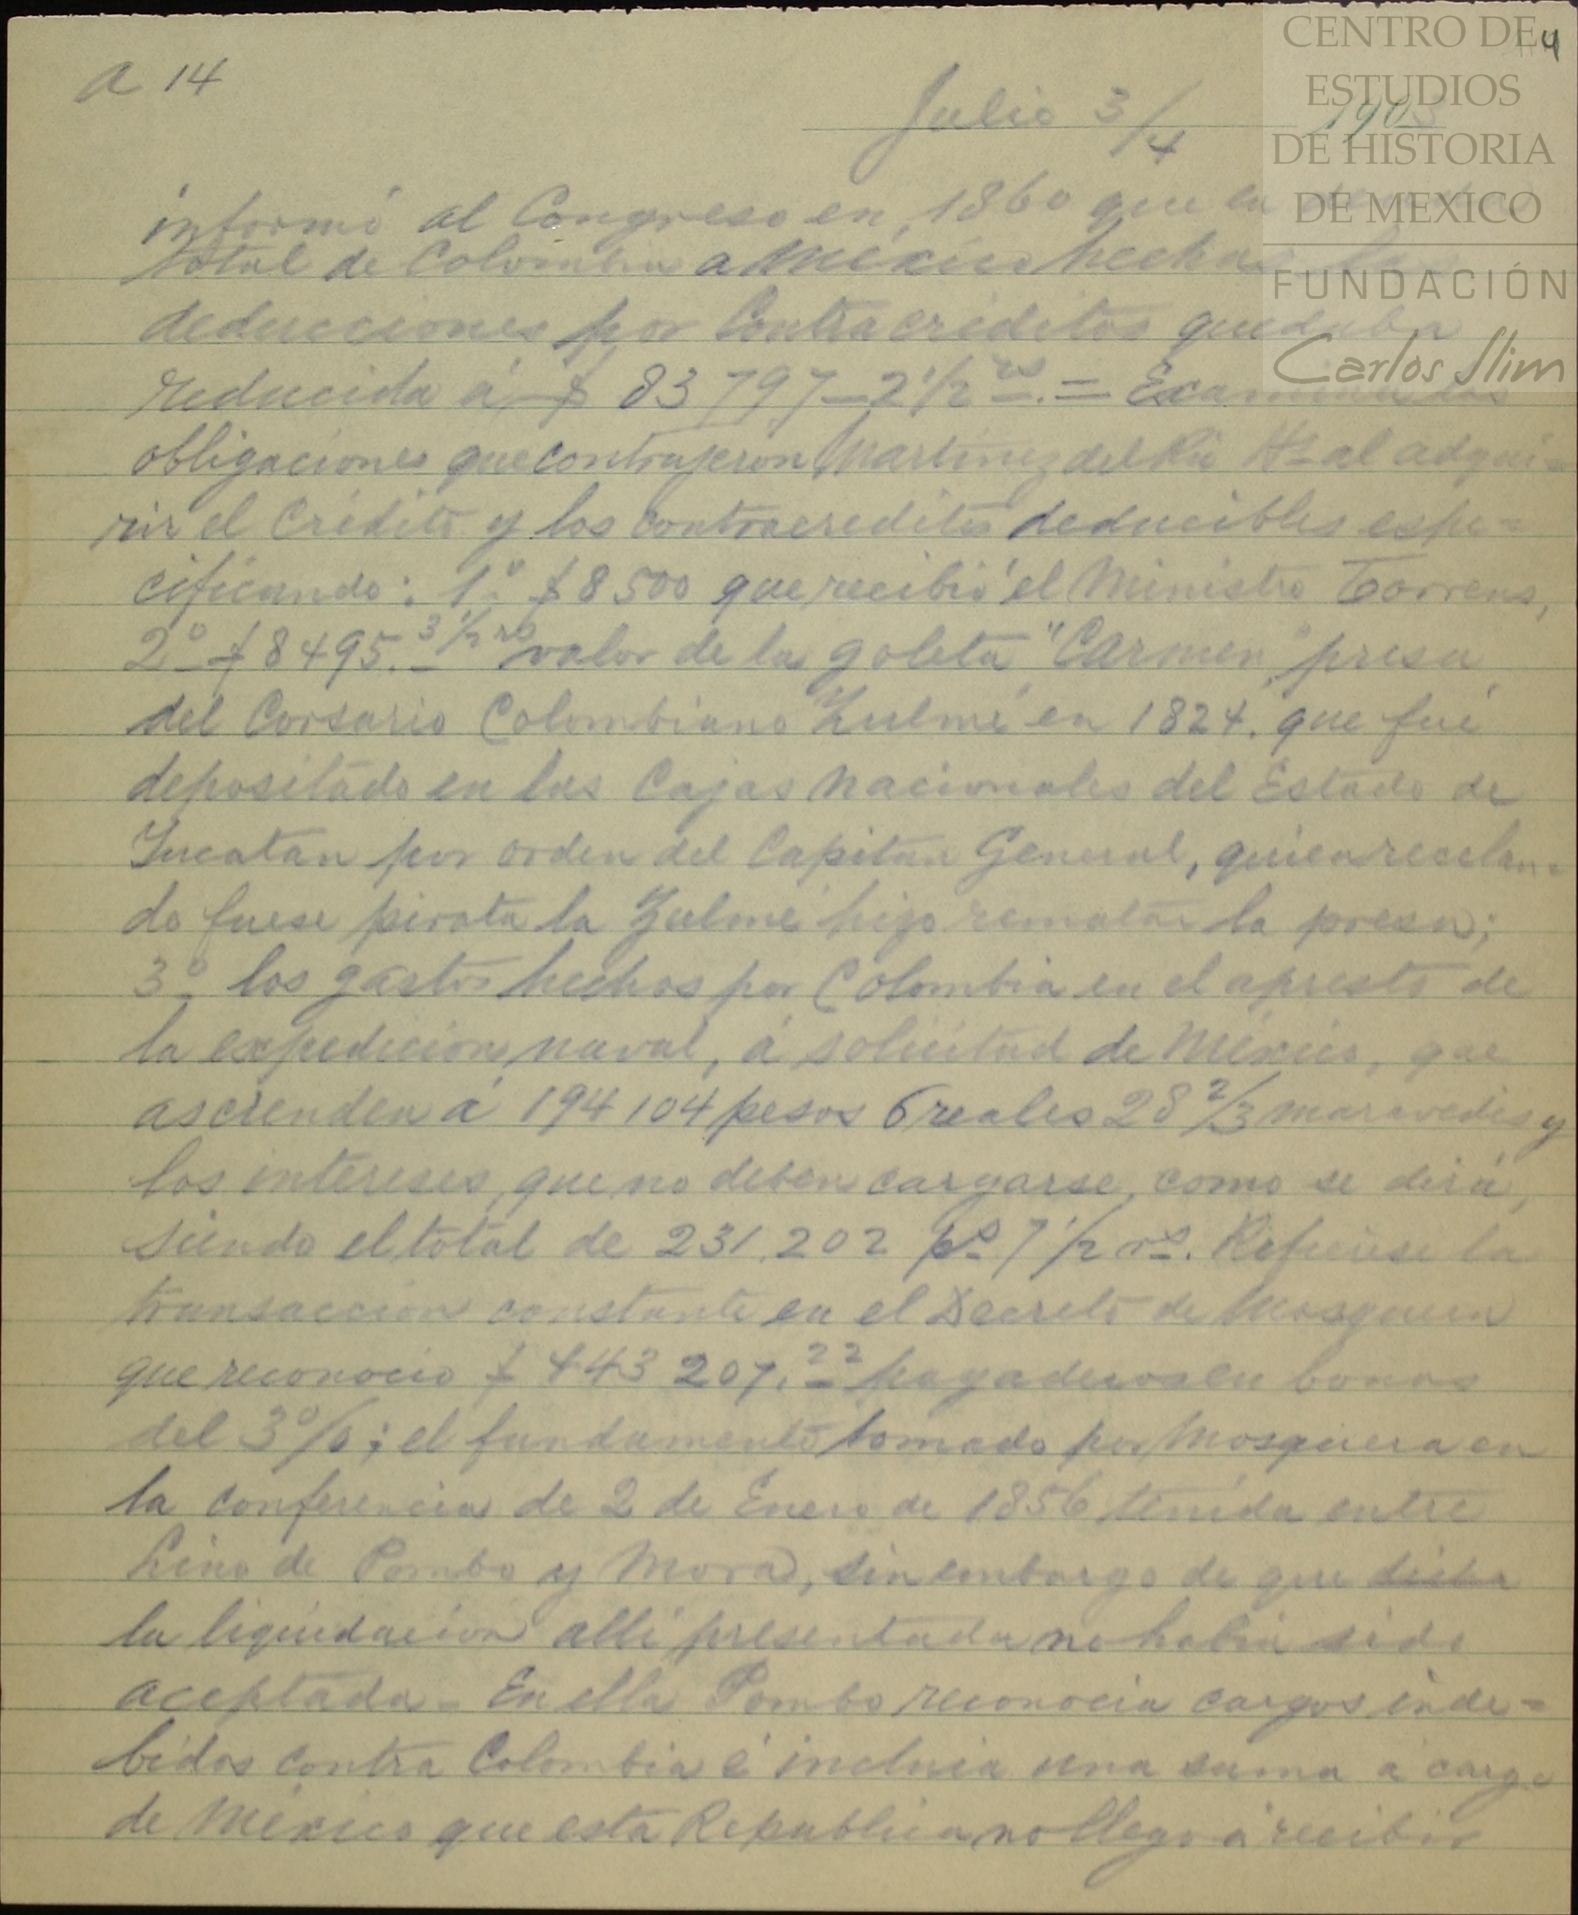 CENTRO DE
ESTUDIOS
DE HISTORIA
DE MEXICO
FUNDACIÓN
Carlos Slim
4
a 14
Julio 3/4 1903
informó al Congreso en 1860 que la
total de Colombia a México hechas las
deducciones por Contracréditos quedaba
reducida á $ 83 797 – 2 1/2 rs. = Examina las
obligaciones que contrajeron Martinez del Rio Hs al adqui=
rir el Crédito y los contracreditos deducibles espe=
cificando: 1º $ 8500 que recibió el Ministro Torrens,
2º $ 8495. 3 1/2 rs valor de la goleta "Carmen," presa
del Corsario Colombiano Zulmé en 1824. que fué
depositado en las Cajas Nacionales del Estado de
Yucatan por orden del Capitan General, quien recelan=
do fuese pirata la Zulmé hizo rematar la presa;
3º los gastos hechos por Colombia en el apresto de
la expedicion naval, á solicitud de México, que
ascienden á 194 104 pesos 6 reales 28 2/3 maravedis y
los intereses, que no deben cargarse, como se dirá,
siendo el total de 231.202 ps 7 1/2 rs. Refierese la
transaccion constante en el Decreto de Mosquera
que reconocio $ 443 207.22 pagaderos en bonos
del 3%; el fundamento tomado por Mosquera en
la conferencia de 2 de Enero de 1856 tenida entre
Lino de Pombo y Mora, sin embargo de que dicha
la liquidacion alli presentada no habia sido
aceptada – En ella Pombo reconocia cargos inde=
bidos contra Colombia é incluia una suma a cargo
de México que esta Republica no llegó á recibir